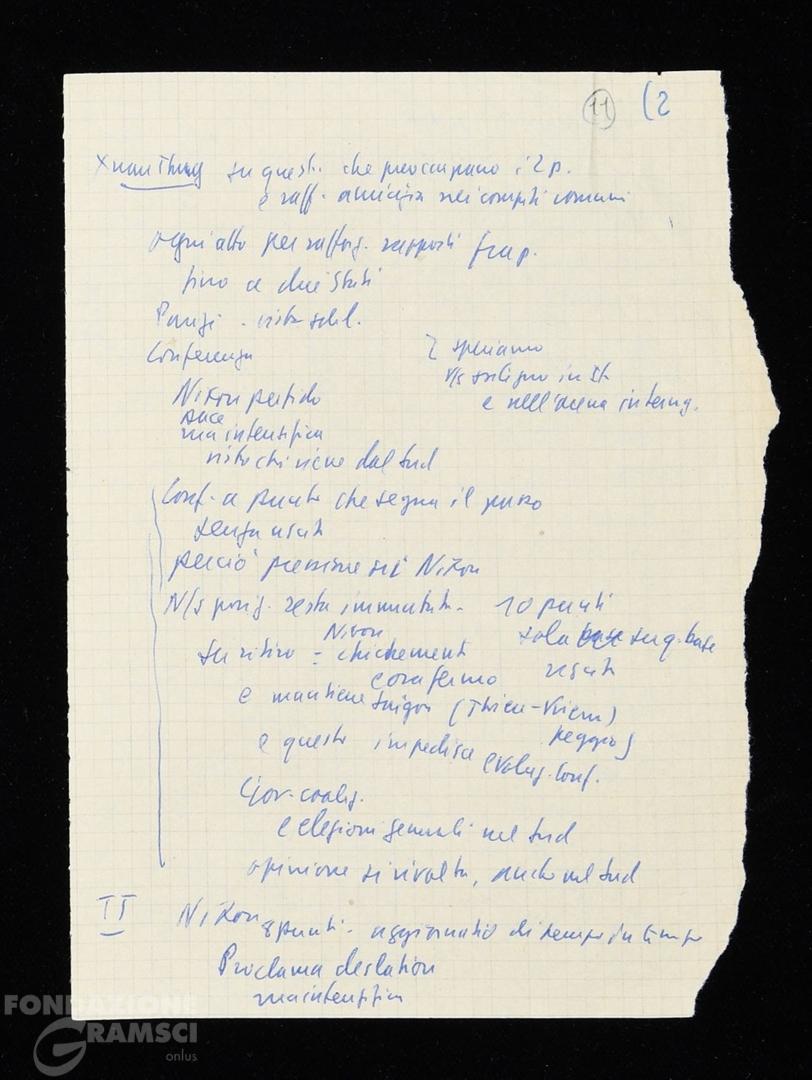 11 (2
Xuan Thuy su quest. che preoccupano i 2 p.
e raff. amicizia nei compiti comuni
ogni atto per rafforz. rapporti fra p.
fino a due Stati
Parigi - visita
Conferenza
speriamo
v/s sostegno in It.
e nell'arena internaz.
Nixon partito
pace
ma intensifica
visto chi viene dal Sud
Conf. a punto che segna il passo
senza
perciò pressione su Nixon
N/s posiz. resta immutata - 10 punti
sola base
su ritiro = Nixon
ora fermo
e mantiene Saigon (Thieu-Khiem)
peggio
e questo impedisce evoluz. Conf.
Gov. coaliz.
e elezioni generali nel Sud
opinione si rivolta, anche nel Sud
II Nixon 8 punti - aggiornati di tempo in tempo
Proclama
ma intensifica
FONDAZIONE
GRAMSCI
onlus